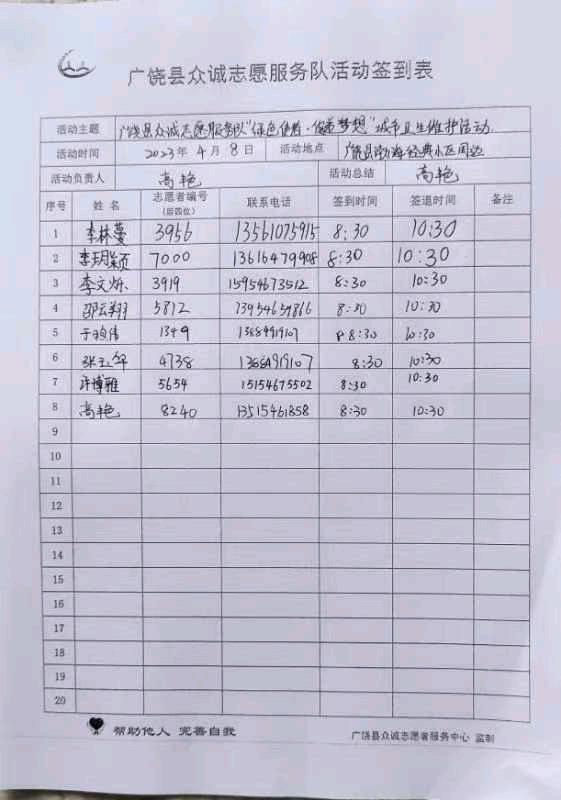 广饶县众诚志愿服务队活动签到表
活动主题 广饶县众诚志愿服务队"绿色使者·保护梦想"城市卫生维护活动
活动时间 2023年4月8日 活动地点 广饶县渤海经典小区周边
活动负责人 高艳 活动总结 高艳
序号 姓名 志愿者编号 联系电话 签到时间 签退时间 备注
(后四位)
1 李林蔓 3956 13561075915 8:30 10:30
2 李玥颖 7000 13616479908 8:30 10:30
3 李文 3919 15954673512 8:30 10:30
4 邵云翔 5812 8:30 10:30
5 1349 13684919107 8:30 10:30
6 张玉华 4738 13684919107 8:30 10:30
7 许博雅 5654 15154675502 8:30 10:30
8 高艳 8240 13515461858 8:30 10:30
9
10
11
12
13
14
15
16
17
18
19
20
帮助他人 完善自我 广饶县众诚志愿者服务中心 监制